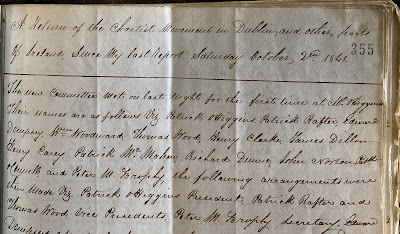 A Return of the Chartist Movement in Dublin and other parts
355
Of Ireland Since My last Report, Saturday October, 2nd 1841
The new Committee met on last Night for the first time at Mr O'Higgins
Their names are as follows Viz Patrick O'Higgins Patrick Rafter Edward
Dempsey Wm Woodward, Thomas Wood, Henry Clarke James Dillon
Henry Carey Patrick Mc Mahon Richard Dunne, John Norton
and Peter M. Brophy, the following arrangements were
then Made Viz. Patrick O'Higgins President, Patrick Rafter and
Thomas Wood Vice Presidents, Peter M. Brophy Secretary, Edward
Dempsey